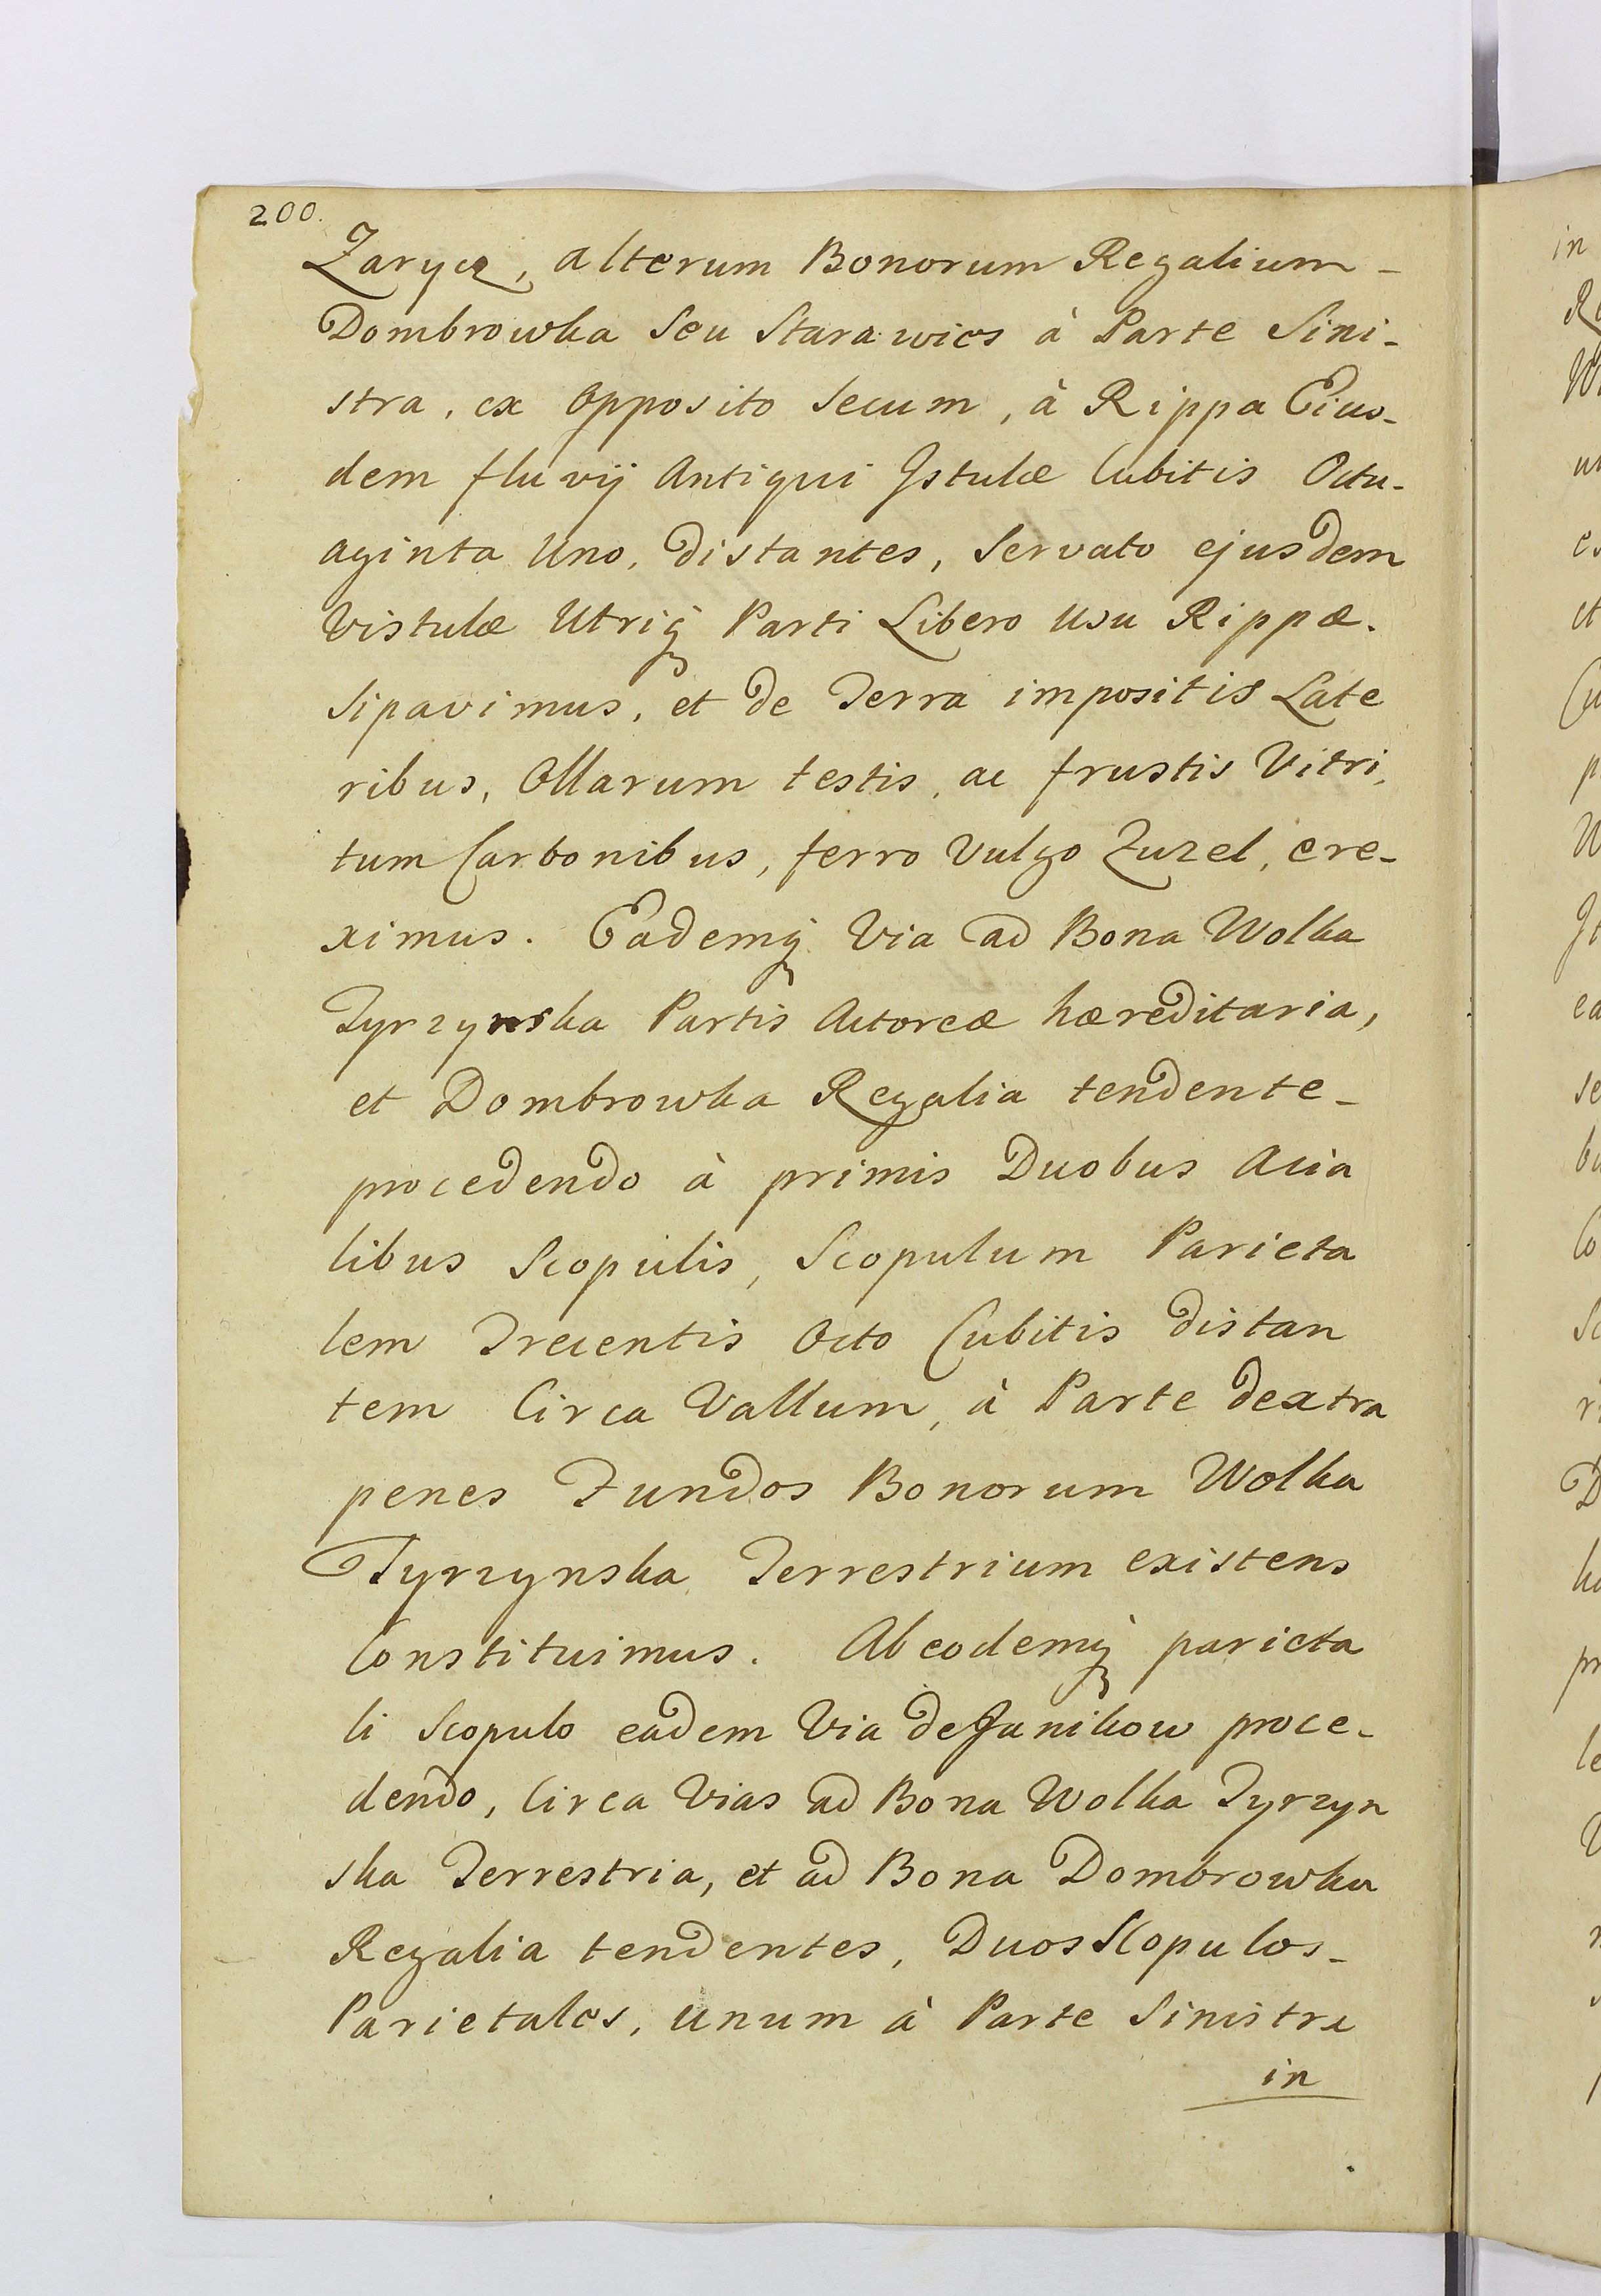 200.
Zarycz, alterum Bonorum Regalium -
Dombrowka Seu Starawies à Parte Sini-
stra, ex Opposito Secum, à Rippa Eius-
dem fluvij Antiqui Istulæ Cubitis Octu-
aginta Uno, distantes, Servato ejusdem
Vistulæ Utriq; Parti Libero Usu Rippæ.
Sipavimus, et de Terra impositis Late
ribus, Ollarum testis, ac frustis Vitri,
tum Carbonibus, ferro Vulgo Zuzel, ere-
ximus. Eademq; Via ad Bona Wolka
Tyrzynska Partis Actoreæ hæreditaria,
et Dombrowka Regalia tendente -
procedendo à primis Duobus Acia
libus Scopulis, Scopulum Parieta
lem Trecentis Octo Cubitis distan
tem Circa Vallum, à Parte dextra
penes Fundos Bonorum Wolka
Tyrzynska Terrestrium existens
Constituimus. Ab eodemq; parieta
li Scopulo eadem Via de Janikow proce-
dendo, Circa Vias ad Bona Wolka Tyrzyn
ska Terrestria, et ad Bona Dombrowka
Regalia tendentes, Duos Scopulos -
Parietales, unum à Parte Sinistra
in